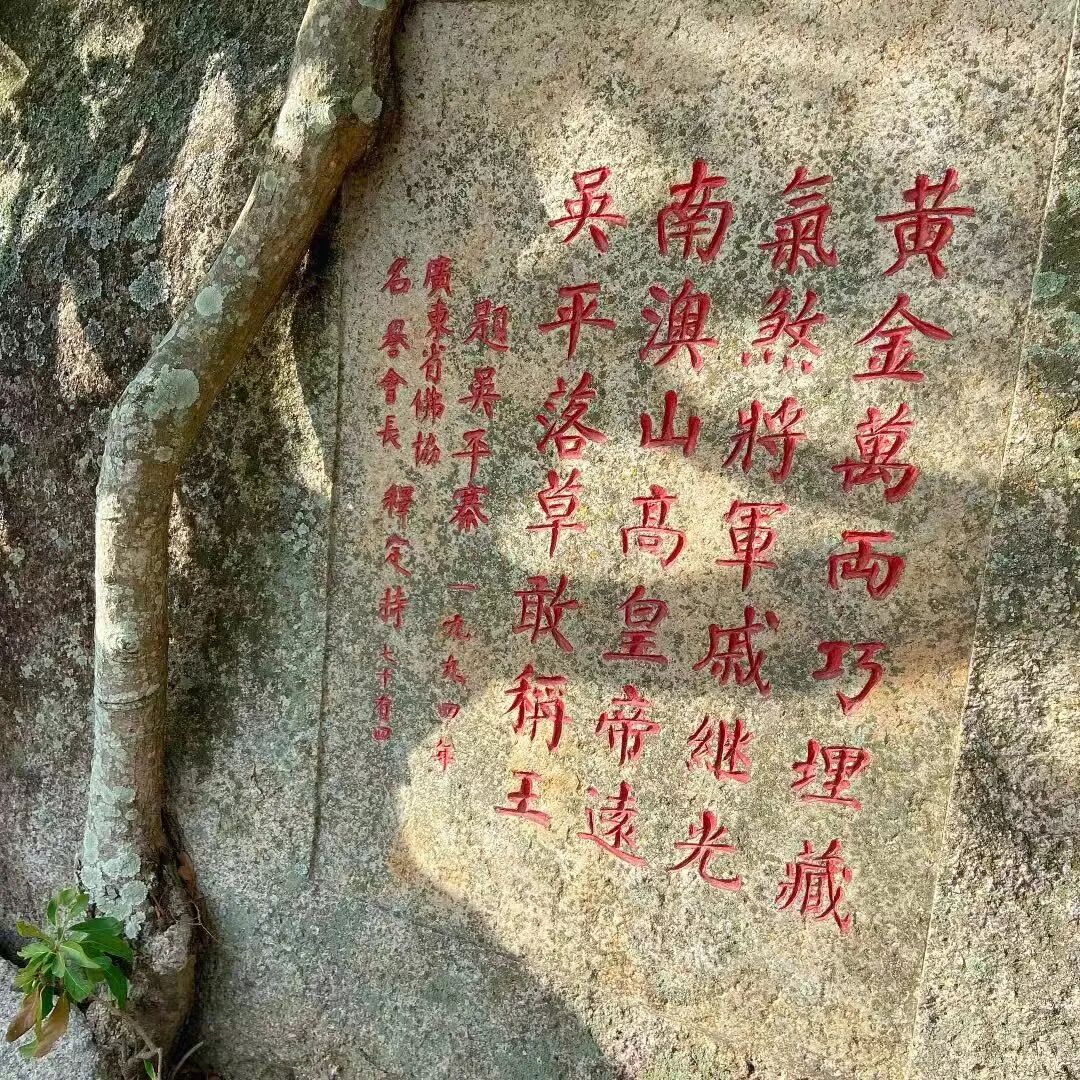 黃金萬两巧埋藏
氣煞將軍戚繼光
南澳山高皇帝遠
吳平落草敢稱王
題吳平寨 一九九四年
廣東省佛協
名譽會長 釋定持 七十有四